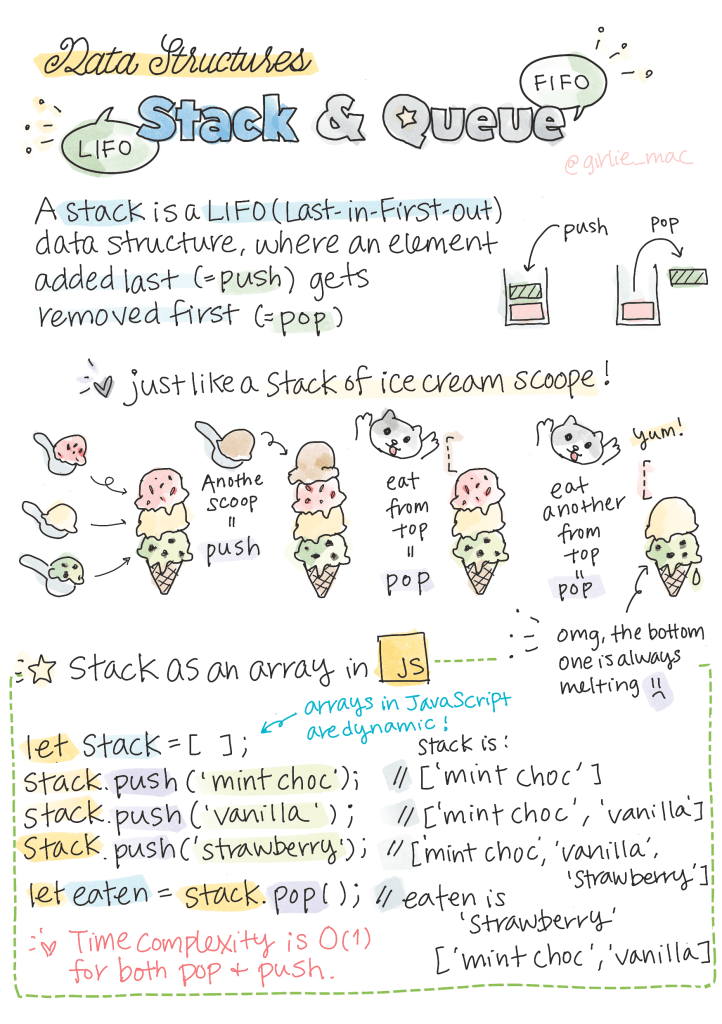 Data Structures
LIFO
Stack & Queue
FIFO
@girlie_mac
A stack is a LIFO (Last-in-First-out)
data structure, where an element
added last (=push) gets
removed first (=pop)
push
pop
just like a stack of ice cream scoope!
Anothe
scoop
=
push
eat
from
top
=
pop
eat
another
from
top
=
pop
yum!
omg, the bottom
one is always
melting
Stack as an array in JS
arrays in JavaScript
are dynamic!
let stack = [ ];
stack is:
stack.push('mint choc'); // ['mint choc']
stack.push('vanilla'); // ['mint choc', 'vanilla']
stack.push('strawberry'); // ['mint choc', 'vanilla',
'strawberry']
let eaten = stack.pop(); // eaten is
'strawberry'
['mint choc', 'vanilla]
Time complexity is O(1)
for both pop + push.